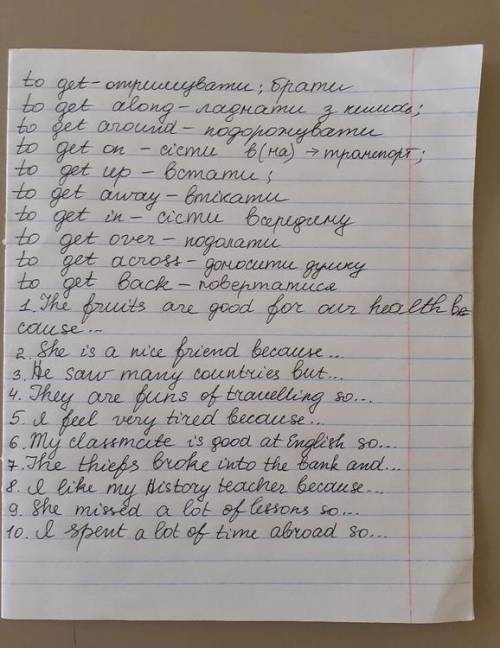 to get - отримувати; брати
to get along - ладнати з кимось;
to get around - подорожувати
to get on - сісти в(на) → транспорт;
to get up - встати;
to get away - втікати
to get in - сісти всередину
to get over - подолати
to get across - доносити думку
to get back - повертатися
1. The fruits are good for our health be
cause...
2. She is a nice friend because...
3. He saw many countries but...
4. They are funs of travelling so...
5. I feel very tired because...
6. My classmate is good at English so...
7. The thiefs broke into the bank and...
8. I like my History teacher because...
9. She missed a lot of lessons so...
10. I spent a lot of time abroad so...